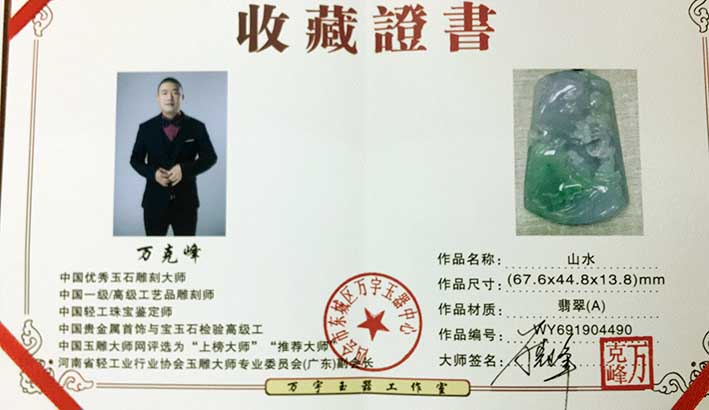 收藏證書
万克峰
中国优秀玉石雕刻大师
中国一级/高级工艺品雕刻师
中国轻工珠宝鉴定师
中国贵金属首饰与宝玉石检验高级工
中国玉雕大师网评选为“上榜大师”“推荐大师”
河南省轻工业行业协会玉雕大师专业委员会(广东)副会长
市东城区万宇玉器中心
作品名称：山水
作品尺寸：(67.6x44.8x13.8)mm
作品材质：翡翠(A)
作品编号：WY691904490
大师签名：
万克峰
万宇玉器工作室